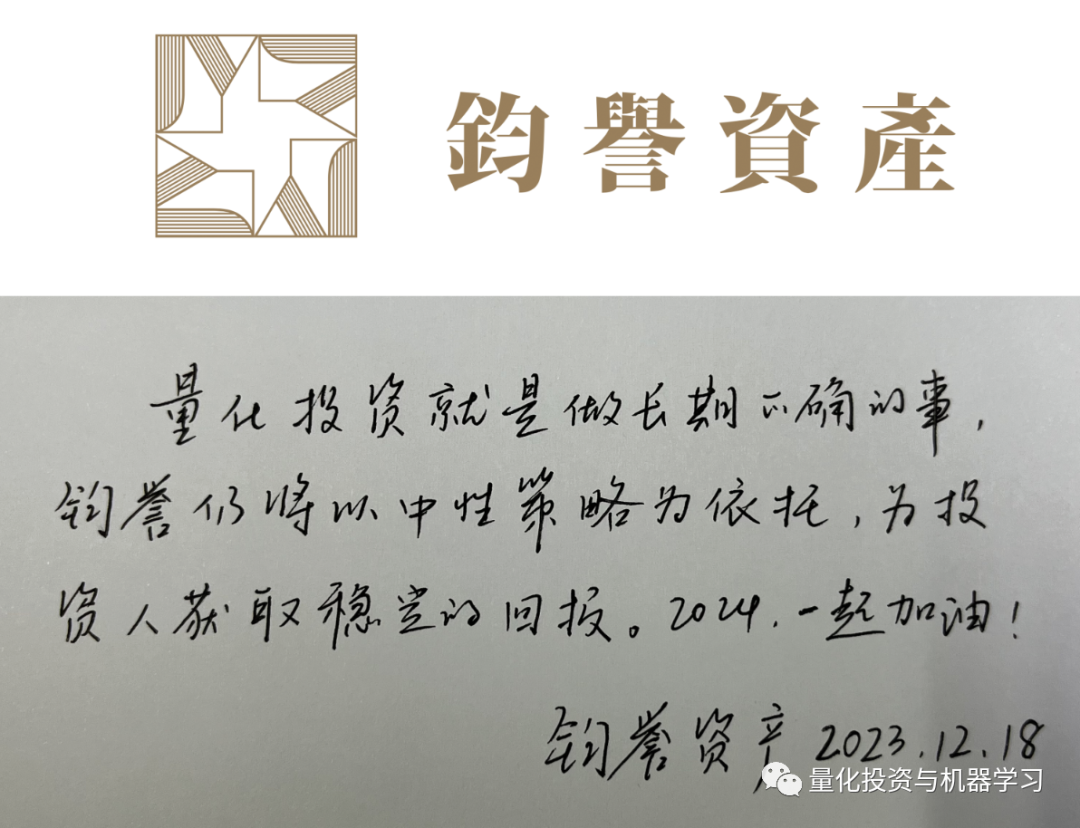 鈞譽資產
量化投资就是做长期正确的事，
钧誉仍将以中性策略为依托，为投
资人获取稳定的回报。2024，一起加油！
钧誉资产 2023.12.18
量化投资与机器学习